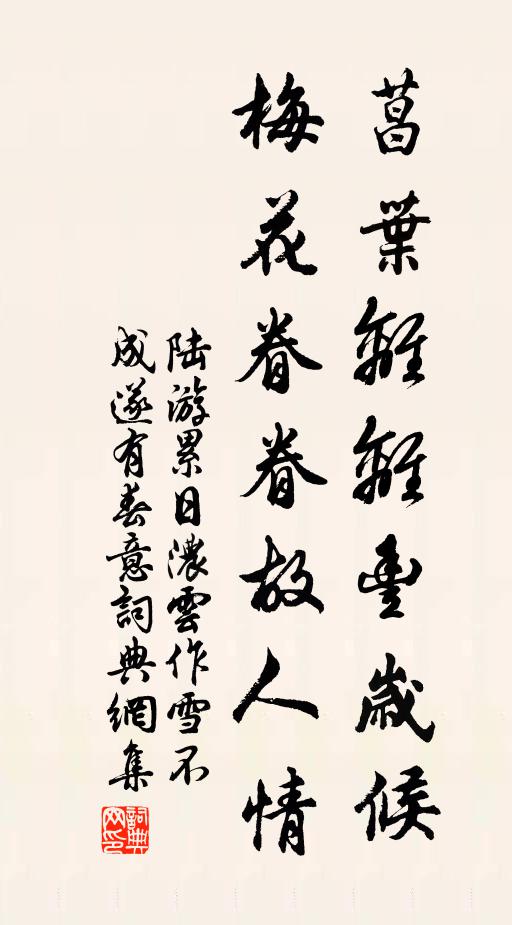 菖葉離離豐歲候
梅花眷眷故人情
陸游累日濃雲作雪不
成遂有春意詞典網集
詞典
网印